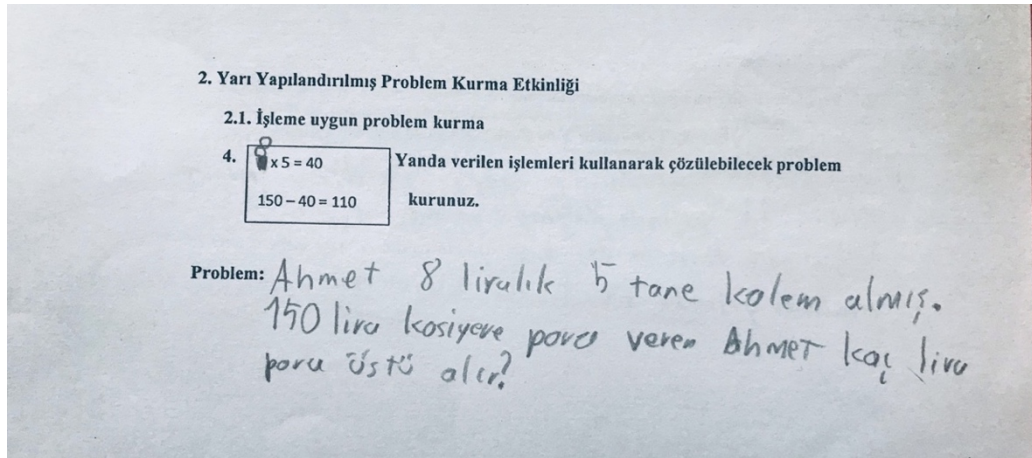 2. Yarı Yapılandırılmış Problem Kurma Etkinliği
2.1. İşleme uygun problem kurma
4. 8 x 5 = 40 Yanda verilen işlemleri kullanarak çözülebilecek problem
150 – 40 = 110 kurunuz.
Problem: Ahmet 8 liralık 5 tane kalem almış.
150 lira kasiyere para veren Ahmet kaç lira
para üstü alır?